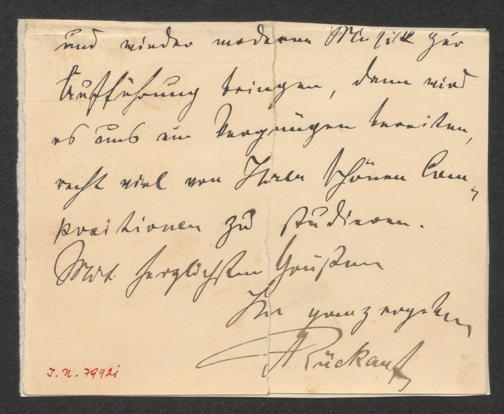 und wieder moderne Musik zur
Aufführung bringen, dann wird
es uns ein Vergnügen bereiten,
recht viel von Ihren schönen Com-
positionen zu studieren.
Mit herzlichsten Grüßen
Ihr ganz ergebener
Rückauf
I.N. 79921